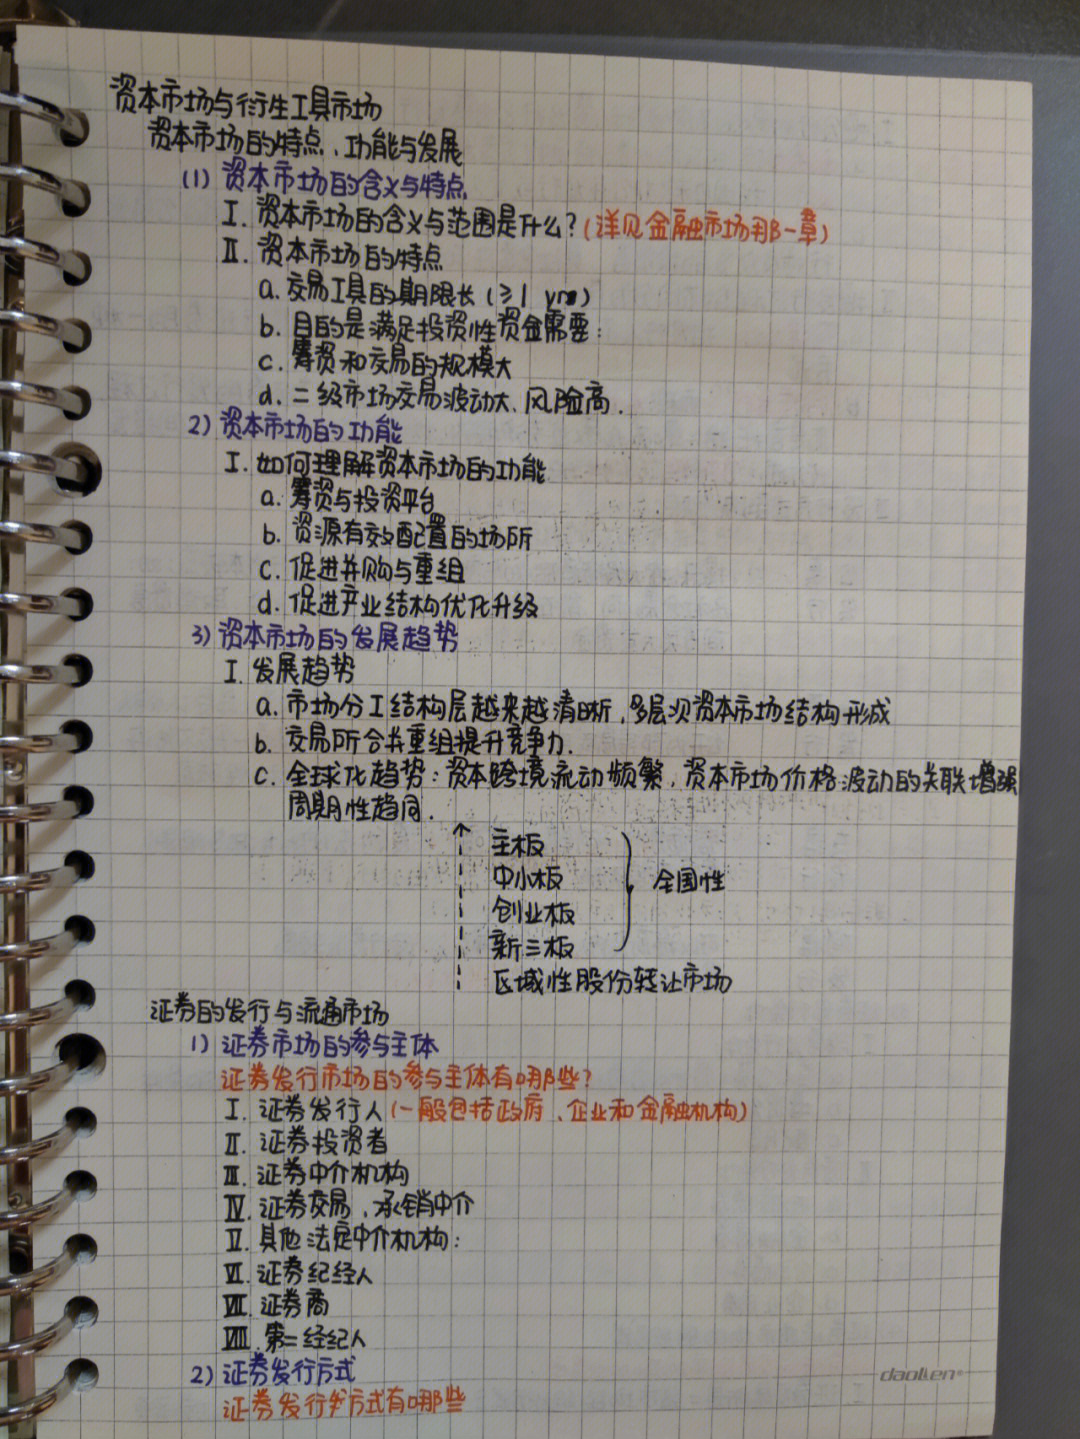 资本市场与衍生工具市场
资本市场的特点、功能与发展
(1) 资本市场的含义与特点
I. 资本市场的含义与范围是什么？(详见金融市场那一章)
II. 资本市场的特点
a. 交易工具的期限长 (≥1 yrs)
b. 目的是满足投资性资金需要；
c. 筹资和交易的规模大
d. 二级市场交易波动大、风险高.
2) 资本市场的功能
I. 如何理解资本市场的功能
a. 筹资与投资平台
b. 资源有效配置的场所
c. 促进并购与重组
d. 促进产业结构优化升级
3) 资本市场的发展趋势
I. 发展趋势
a. 市场分工结构层越来越清晰，多层次资本市场结构形成
b. 交易所合并重组提升竞争力.
c. 全球化趋势：资本跨境流动频繁，资本市场价格波动的关联增强
周期性趋同.
主板
中小板
创业板
新三板
全国性
区域性股份转让市场
证券的发行与流通市场
1) 证券市场的参与主体
证券发行市场的参与主体有哪些？
I. 证券发行人 (一般包括政府、企业和金融机构)
II. 证券投资者
III. 证券中介机构
IV. 证券交易、承销中介
V. 其他法定中介机构：
VI. 证券纪经人
VII. 证券商
VIII. 第二经纪人
2) 证券发行方式
证券发行方式有哪些
daolen®